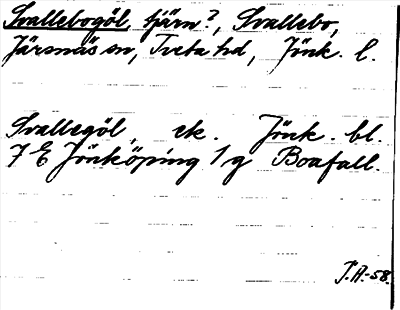 Svallebogöl, tjärn?, Svallebo,
Järsnäs sn, Tveta hd, Jönk. l.
Svallegöl, ek. Jönk. bl.
7 E Jönköping 1 g Boafall.
T.A.-58.